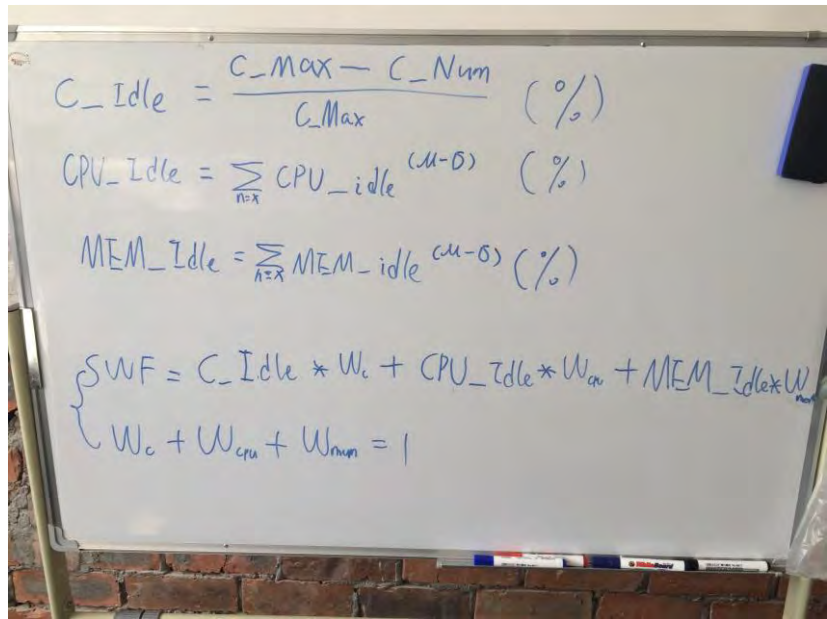 C_Idle = (C_Max − C_Num) / C_Max (%)
CPU_Idle = ∑ n=x CPU_idle (μ-σ) (%)
MEM_Idle = ∑ n=x MEM_idle (μ-σ) (%)
SWF = C_Idle * Wc + CPU_Idle * Wcpu + MEM_Idle * Wmem
Wc + Wcpu + Wmem = 1